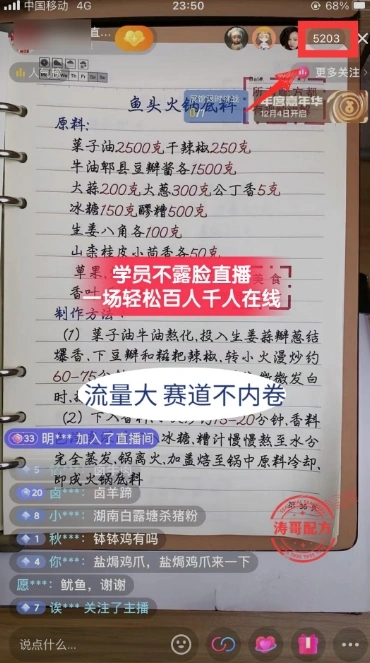 中国移动 4G
23:50
68%
直...
5203
人气榜
更多关注
年度嘉年华
12月4日开启
鱼头火锅底料
原料:
菜子油2500克干辣椒250克
牛油郫县豆瓣酱各1500克
大蒜200克大葱300克公丁香5克
冰糖150克醪糟500克
生姜八角各100克
山柰桂皮小茴香各50克
草果
香叶
美食
学员不露脸直播
一场轻松百人千人在线
制作方法:
(1)菜子油牛油熬化,投入生姜蒜瓣葱结
爆香,下豆瓣和糍粑辣椒,转小火漫炒约
60-75分
微微发白
流量大 赛道不内卷
时,
(2)下入香料
15-20分钟,香料
33 明*** 加入了直播间
冰糖,糟汁慢慢熬至水分
完全蒸发,锅离火,加盖焙至锅中原料冷却,
20 卤***: 卤羊蹄
即成火锅底料
8 小***: 湖南白露塘杀猪粉
1 秋***: 钵钵鸡有吗
4 你***: 盐焗鸡爪,盐焗鸡爪来一下
愿***: 鱿鱼,谢谢
7 诶*** 关注了主播
第 36 页
涛哥配方
说点什么...